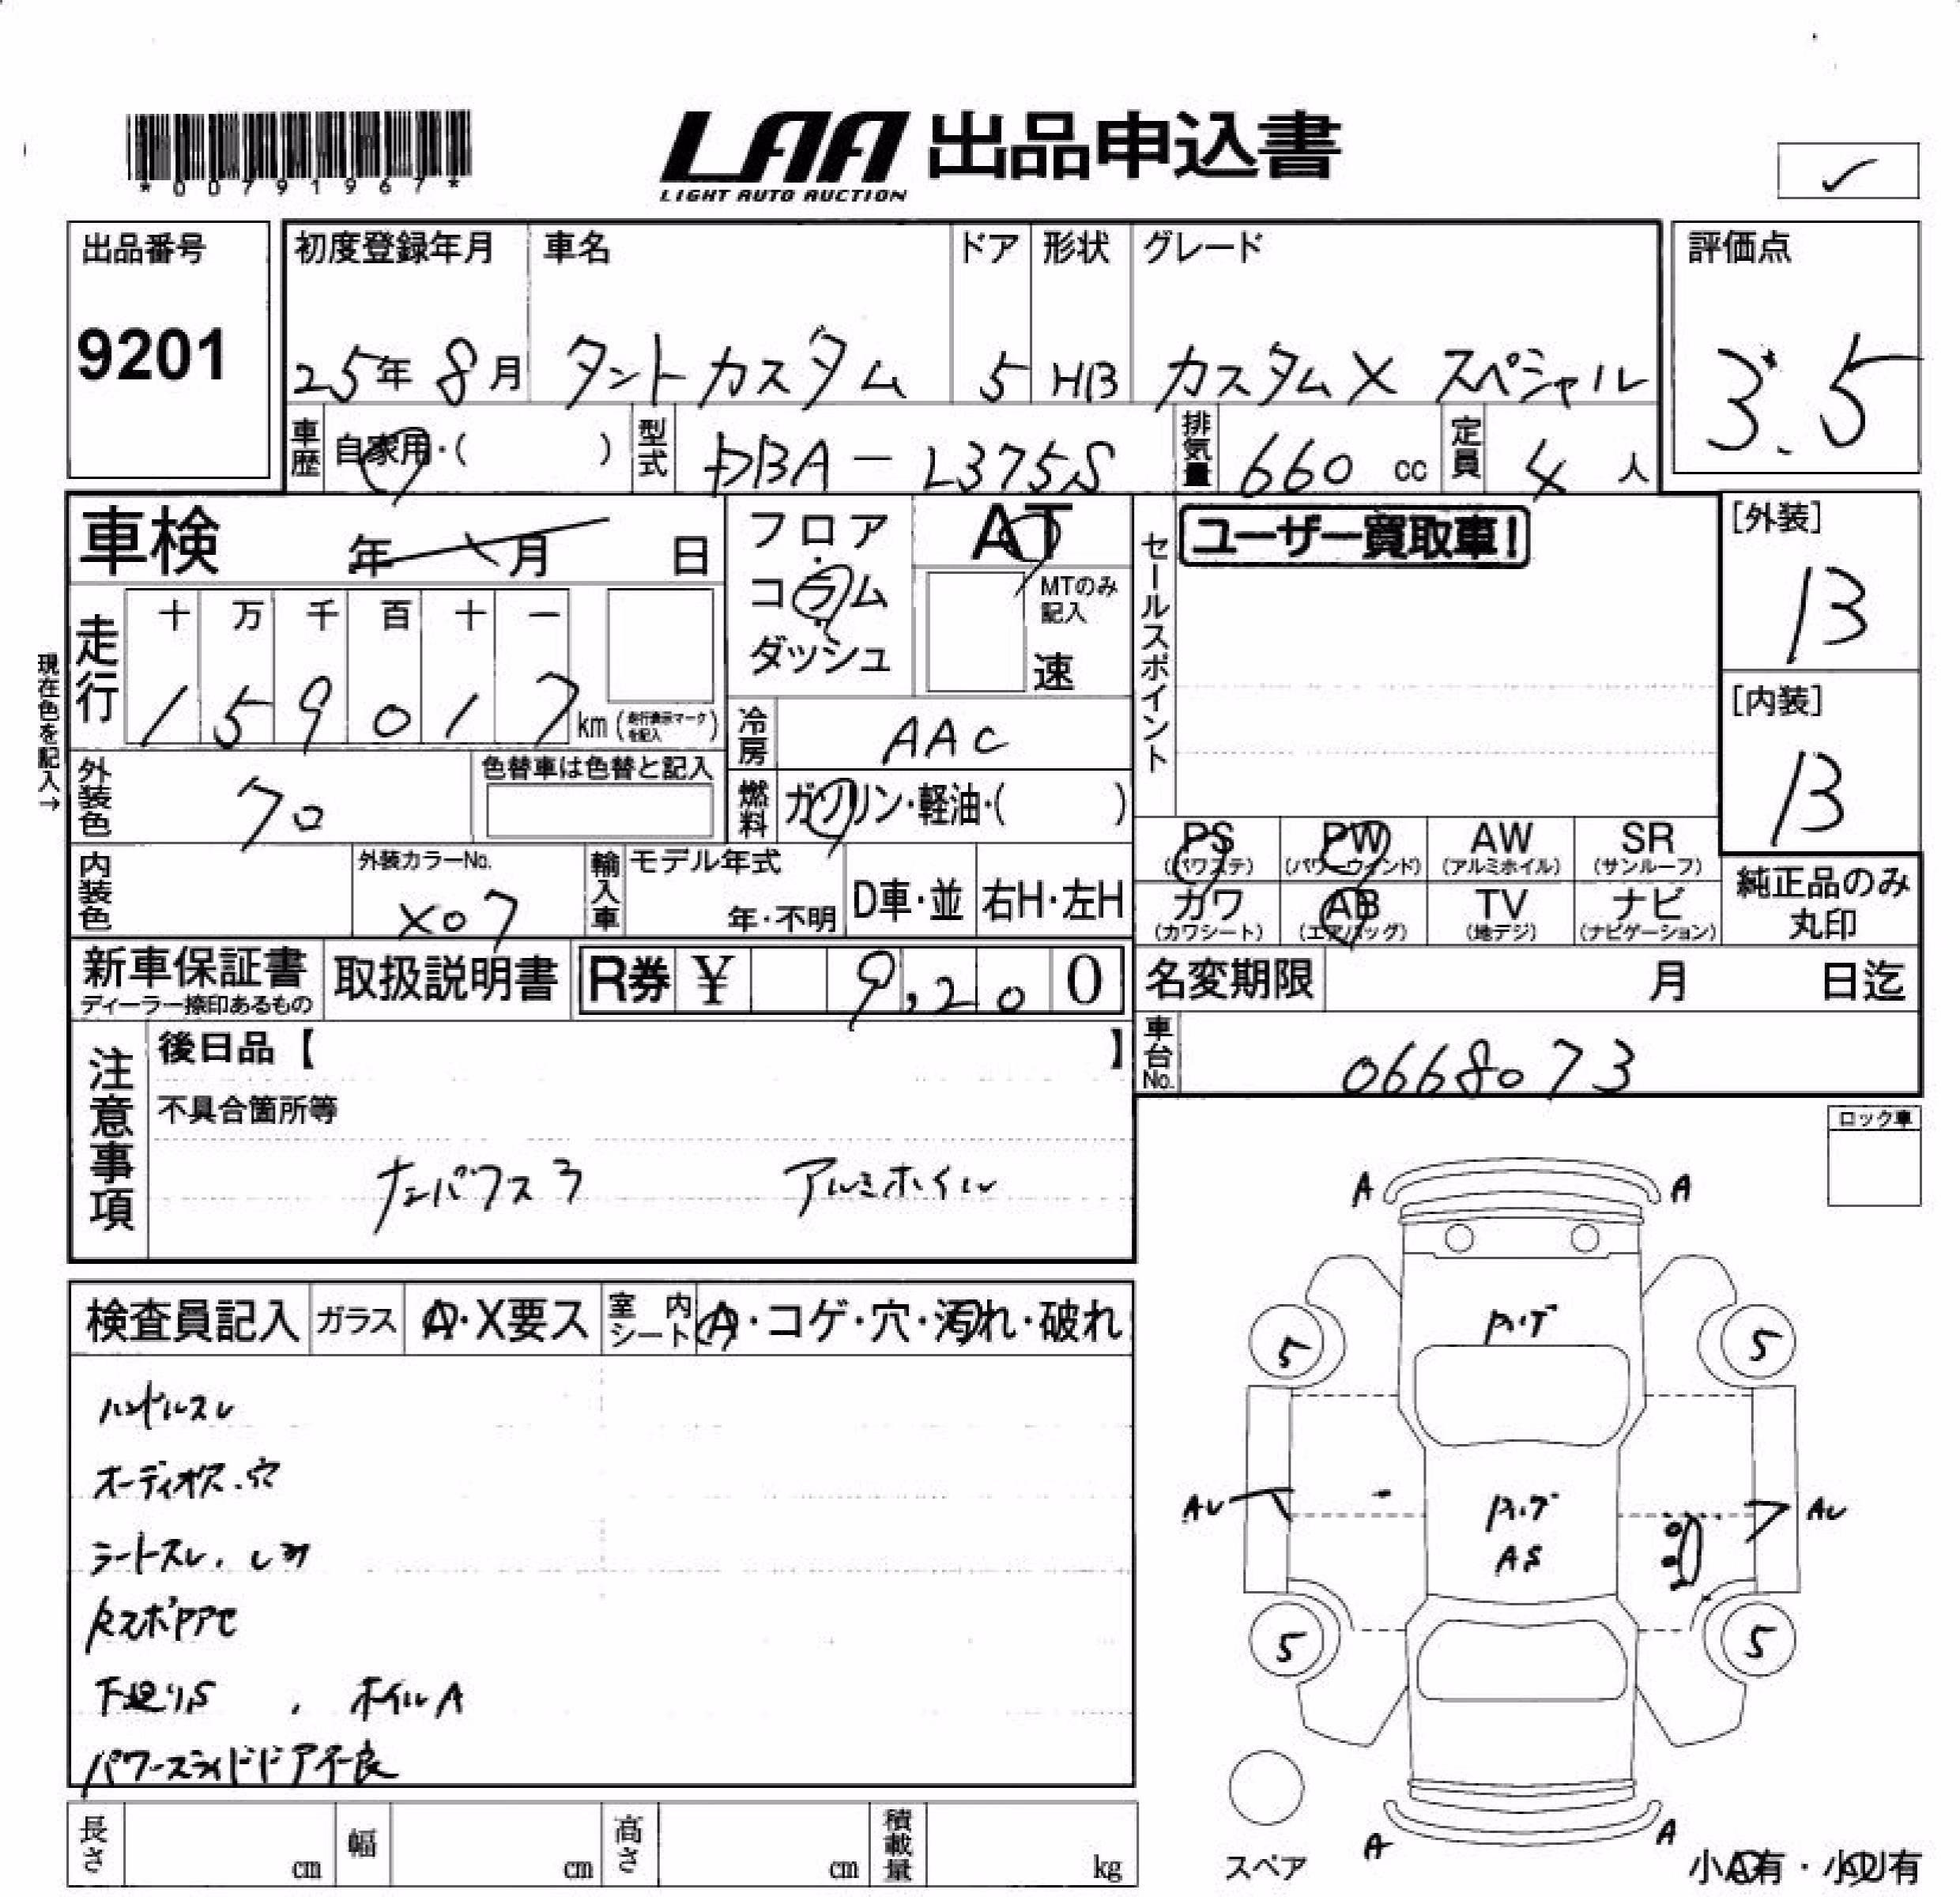 *00791967*
LAA 出品申込書
LIGHT AUTO AUCTION
✓
出品番号
9201
初度登録年月
25年 8月
車名
タントカスタム
ドア
5
形状
HB
グレード
カスタムX スペシャル
評価点
3.5
車歴
自家用・( )
型式
DBA-L375S
排気量
660 cc
定員
4 人
車検 年 月 日
フロア・コラム・ダッシュ
AT
MTのみ記入
速
セールスポイント
ユーザー買取車!
[外装]
B
現在色を記入→
走行
十 万 千 百 十 一
1 5 9 0 1 7 km (走行表示マークを記入)
冷房
AAC
[内装]
B
外装色
クロ
色替車は色替と記入
燃料
ガソリン・軽油・( )
PS (パワステ)
PW (パワーウィンド)
AW (アルミホイル)
SR (サンルーフ)
内装色
外装カラーNo.
X07
輸入車
モデル年式
年・不明
D車・並
右H・左H
カワ (カワシート)
AB (エアバッグ)
TV (地デジ)
ナビ (ナビゲーション)
純正品のみ丸印
新車保証書
ディーラー捺印あるもの
取扱説明書
R券 ¥ 9,200
名変期限 月 日迄
車台No.
0668073
注意事項
後日品【 】
不具合箇所等
アルミホイル
ロック車
検査員記入
ガラス
A・X要ス
室内シート
A・コゲ・穴・汚れ・破れ
ハンドルスレ
オーディオレス.穴
シートスレ.しみ
下廻りS , ホイルA
パワースライドドア不良
A A
5 5
AU AU
AS
5 5
A A
スペア
小A有・小U有
長さ cm
幅 cm
高さ cm
積載量 kg